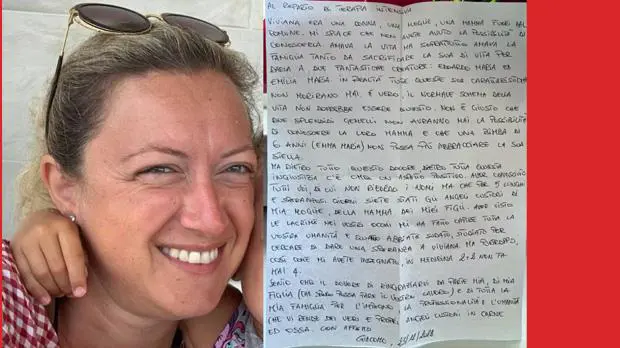 AL REPARTO DI TERAPIA INTENSIVA
VIVIANA ERA UNA DONNA, UNA MOGLIE, UNA MAMMA FUORI DAL
COMUNE. MI SPIACE CHE NON AVETE AVUTO LA POSSIBILITÀ DI
CONOSCERLA AMAVA LA VITA MA SOPRATTUTTO AMAVA LA
FAMIGLIA TANTO DA SACRIFICARE LA SUA DI VITA PER
DARLA A DUE FANTASTICHE CREATURE: EDOARDO MARIA ED
EMILIA MARIA. IN REALTÀ TUTTE QUESTE SUE CARATTERISTICHE
NON MORIRANNO MAI. È VERO, IL NORMALE SCHEMA DELLA
VITA NON DOVREBBE ESSERE QUESTO. NON È GIUSTO CHE
DUE SPLENDIDI GEMELLI NON AVRANNO MAI LA POSSIBILITÀ
DI CONOSCERE LA LORO MAMMA E CHE UNA BIMBA DI
6 ANNI (EMMA MARIA) NON POSSA PIÙ ABBRACCIARE LA SUA
STELLA.
MA DIETRO TUTTO QUESTO DOLORE, DIETRO TUTTA QUESTA
INGIUSTIZIA C'È UN ASPETTO POSITIVO. AVER CONOSCIUTO
TUTTI VOI, DI CUI NON RICORDO I NOMI MA CHE PER 5 LUNGHI
E GIORNI SIETE STATI GLI ANGELI CUSTODI DI
MIA MOGLIE, DELLA MAMMA DEI MIEI FIGLI. AVER VISTO
LE LACRIME NEI VOSTRI OCCHI MI HA FATTO CAPIRE TUTTA LA
VOSTRA UMANITÀ E QUANTO ABBIATE SUDATO, STUDIATO PER
CERCARE DI DARE UNA SPERANZA A VIVIANA. MA PURTROPPO,
COSÌ COME MI AVETE INSEGNATO, IN MEDICINA 2+2 NON FA
MAI 4.
SENTO CHE IL DOVERE DI RINGRAZIARVI DA PARTE MIA, DI MIA
FIGLIA (CHE POSSA FARE IL VOSTRO LAVORO) E DI TUTTA LA
MIA FAMIGLIA PER L'IMPEGNO LA PROFESSIONALITÀ E L'UMANITÀ
CHE VI RENDE DEI VERI E PROPRI ANGELI CUSTODI IN CARNE
ED OSSA. CON AFFETTO
GIACOMO